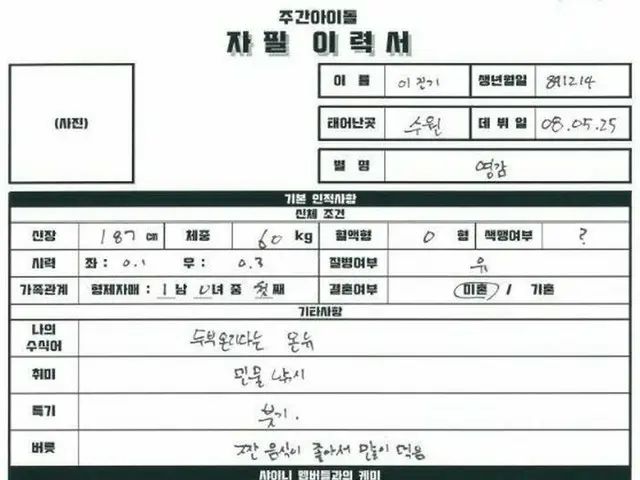 주간아이돌
자필 이력서
(사진)
이 름 이진기 생년월일 891214
태어난곳 수원 데 뷔 일 08.05.25
별 명 영감
기본 인적사항
신체 조건
신장 187 cm 체중 60 kg 혈액형 O 형 색맹여부 ?
시력 좌 : 0.1 우 : 0.3 질병여부 유
가족관계 형제자매 : 1 남 0 녀 중 첫 째 결혼여부 미혼 / 기혼
기타사항
나의 수식어 두부온리다는 온유
취미 민물 낚시
특기 붓기.
버릇 짠 음식이 좋아서 많이 먹음
샤이니 멤버들과의 케미